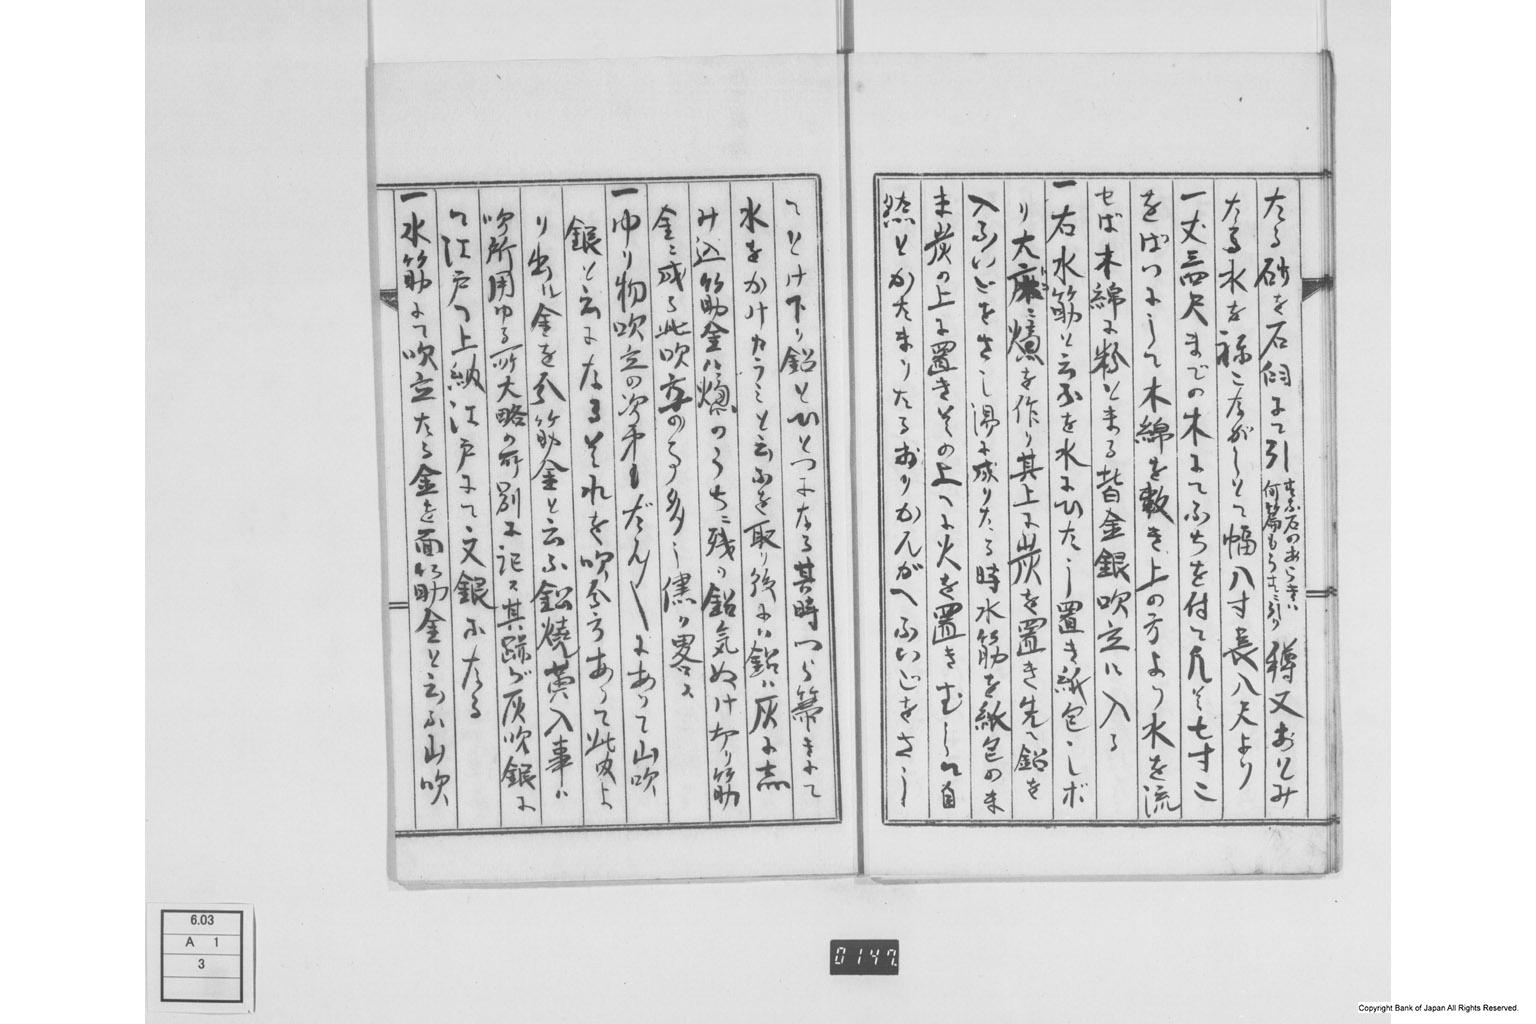 たる砂を石臼にて引
たる水をねこながしとて幅八寸長八尺より
一丈三四尺までの木にてふちを付て凡そ七寸こ
をばいにして木綿を敷き上の方より水を流
せば木綿に粉とまる皆金銀吹立に入る
一右水筋と云ふを水にひたし置き紙包にしボ
り大床に爐を作り其上に炭を置き先へ鉛を
入ふいごをさし湯に成りたる時水筋を紙包のま
ま炭の上に置きその上へ火を置き
然とかたまりたるおりかんがへふいごをさし
てとけ下り鉛とひとつになる其時
水をかけカラミと云ふを取り後には鉛は灰に
み込筋金は爐のうちに残り鉛気ぬけ切り筋
金に成る此吹方の
一ゆり物吹立の次第もだん〱にあつて山吹
銀と云になるそれを吹分あつて此度よ
り出に金を分筋金と云ふ鉛燒
吹所用ゆる所大略の所別に記す其跡が灰吹銀に
て江戸へ上納江戸にて文銀になる
一水筋にて吹立たる金を面筋金と云ふ山吹
6.03
A 1
3
0147
Copyright Bank of Japan All Rights Reserved.